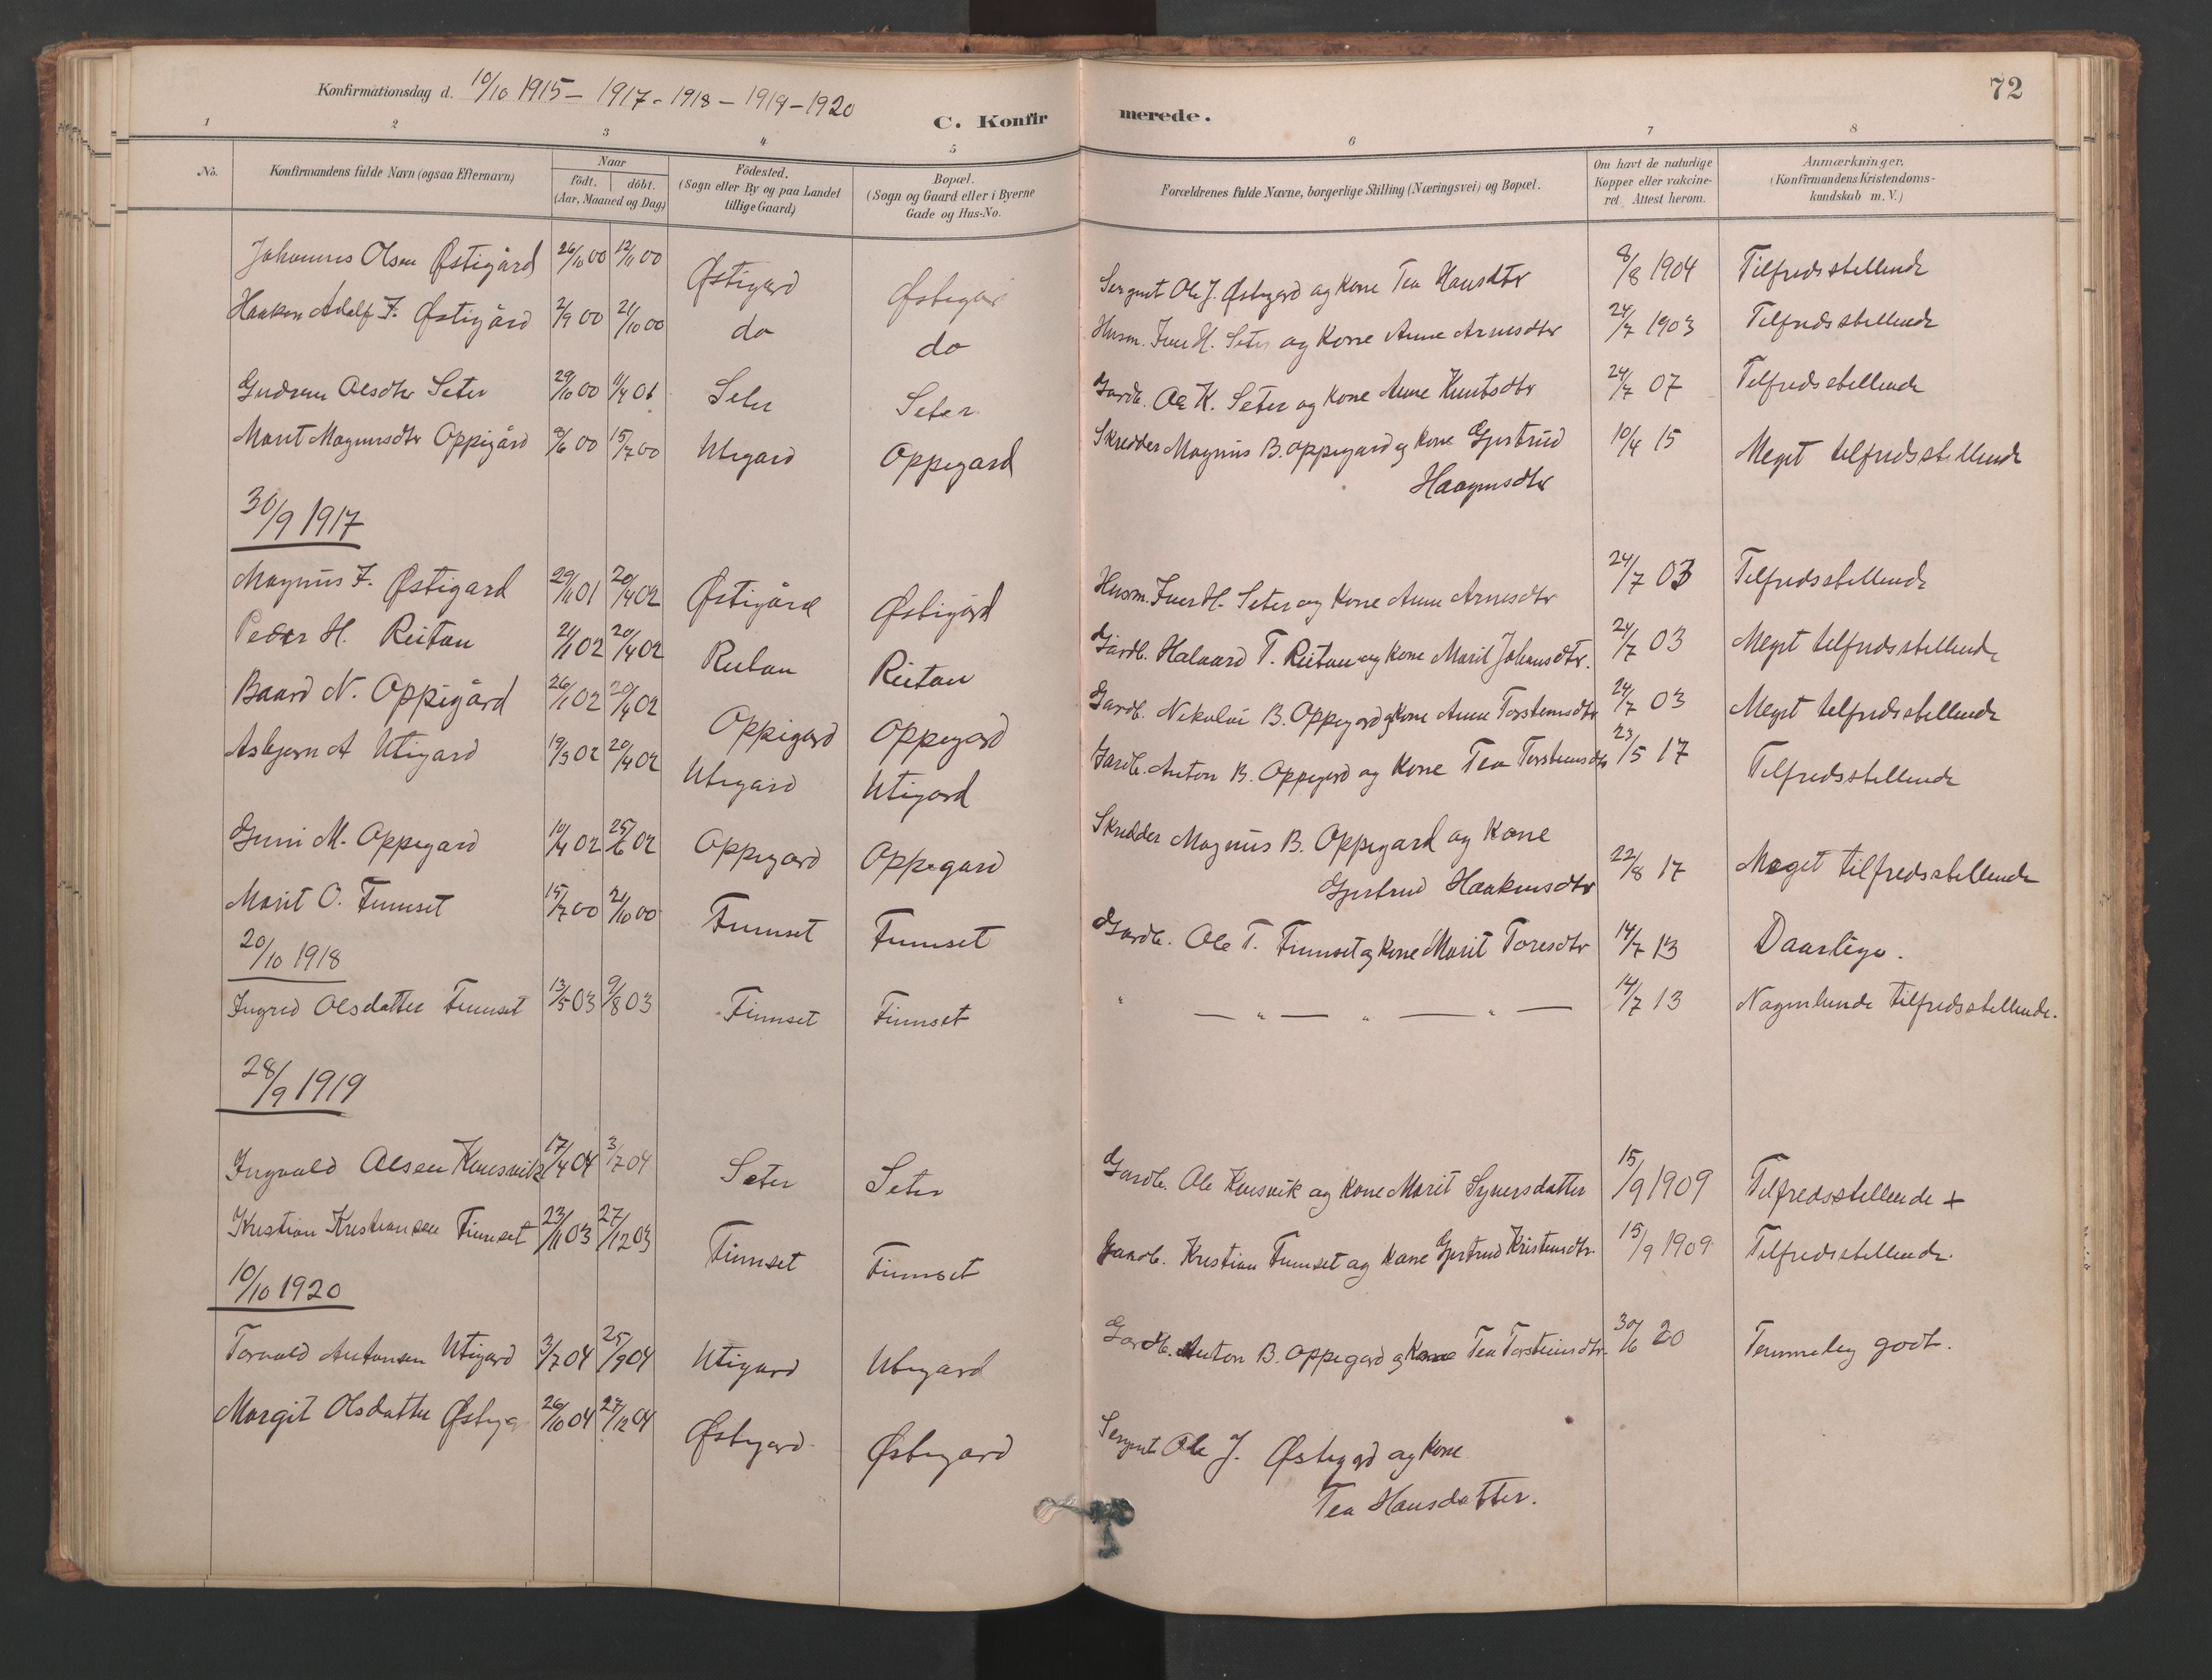 72
Konfirmationsdag d. 10/10 1915 – 1917 - 1918 – 1919 – 1920
C. Konfirmerede.
1 2 3 4 5 6 7 8
No. Konfirmandens fulde Navn (ogsaa Efternavn) Naar födt. döbt. (Aar, Maaned og Dag) Födested. (Sogn eller By og paa Landet tillige Gaard) Bopæl. (Sogn og Gaard eller i Byerne Gade og Hus-No. Forældrenes fulde Navne, borgerlige Stilling (Næringsvei) og Bopæl. Om havt de naturlige Kopper eller vakcineret. Attest herom. Anmærkninger. (Konfirmandens Kristendomskundskab m. V.)
Johannes Olsen Østigård 26/10 00 12/11 00 Østigard Østigar Sergent Ole J. Østigard og Kone Tea Hansdtr 8/8 1904 Tilfredsstillende
Haaken Adolf I. Østigård 2/9 00 21/10 00 do do Husm. Iver H. Seter og Kone Anne Arnesdtr 24/7 1903 Tilfredsstillende
Gudrun Olsdtr Seter 29/10 00 11/4 01 Seter Seter Gardb. Ole K. Seter og Kone Anne Knutsdtr 24/7 07 Tilfredsstillende
Marit Magnusdtr Oppigård 8/6 00 15/7 00 Utigard Oppegard Skredder Magnus B. Oppegard og Kone Gjertrud 10/4 15 Meget tilfredsstillende
Haagensdtr
30/9 1917
Magnus I. Østigard 29/11 01 20/4 02 Østigård Østigård Husm. Iver H. Seter og Kone Anne Arnesdtr 24/7 03 Tilfredsstillende
Peder H. Reitan 21/1 02 20/4 02 Reitan Reitan Gårdb. Halvard T. Reitan og Kone Marit Johansdtr. 24/7 03 Meget tilfredsstillende
Baard N. Oppigård 26/1 02 20/4 02 Oppigard Oppegard Gardb. Nikolai B. Oppegard og Kone Anne Torsteinsdtr 24/7 03 Meget tilfredsstillende
Asbjørn A Utigard 19/3 02 20/4 02 Utigard Utigard Gardb. Anton B. Oppegard og Kone Tea Torsteinsdtr 23/5 17 Tilfredsstillende
Guni M. Oppegard 10/4 02 25/6 02 Oppegard Oppegard Skredder Magnus B. Oppegard og Kone
Gjertrud Haakensdtr 22/8 17 Meget tilfredsstillende
Marit O. Finnset 15/7 00 21/10 00 Finnset Finnset Gardb. Ole T. Finnset og Kone Marit Toresdtr 14/7 13 Daarlige.
20/10 1918
Ingrid Olsdatter Finnset 13/5 03 9/8 03 Finnset Finnset " — " — " — " — 14/7 13 Nogenlunde tilfredsstillende.
28/9 1919
Ingvald Olsen Keusvik 17/4 04 3/7 04 Seter Seter Gardb. Ole Keusvik og Kone Marit Syversdatter 15/9 1909 Tilfredsstillende +
Kristian Kristiansen Finnset 23/11 03 27/12 03 Finnset Finnset Gaardb. Kristian Finnset og Kone Gjertrud Kristensdtr. 15/9 1909 Tilfredsstillende.
10/10 1920
Torvald Antonsen Utigard 3/7 04 25/9 04 Utigard Utigard Gardb. Anton B. Oppegard og Kone Tea Torsteinsdtr. 30/6 20 Temmelig godt.
Margit Olsdatter Østiga 26/10 04 27/12 04 Østigard Østigard Sergent Ole J. Østigard og Kone
Tea Hansdatter.